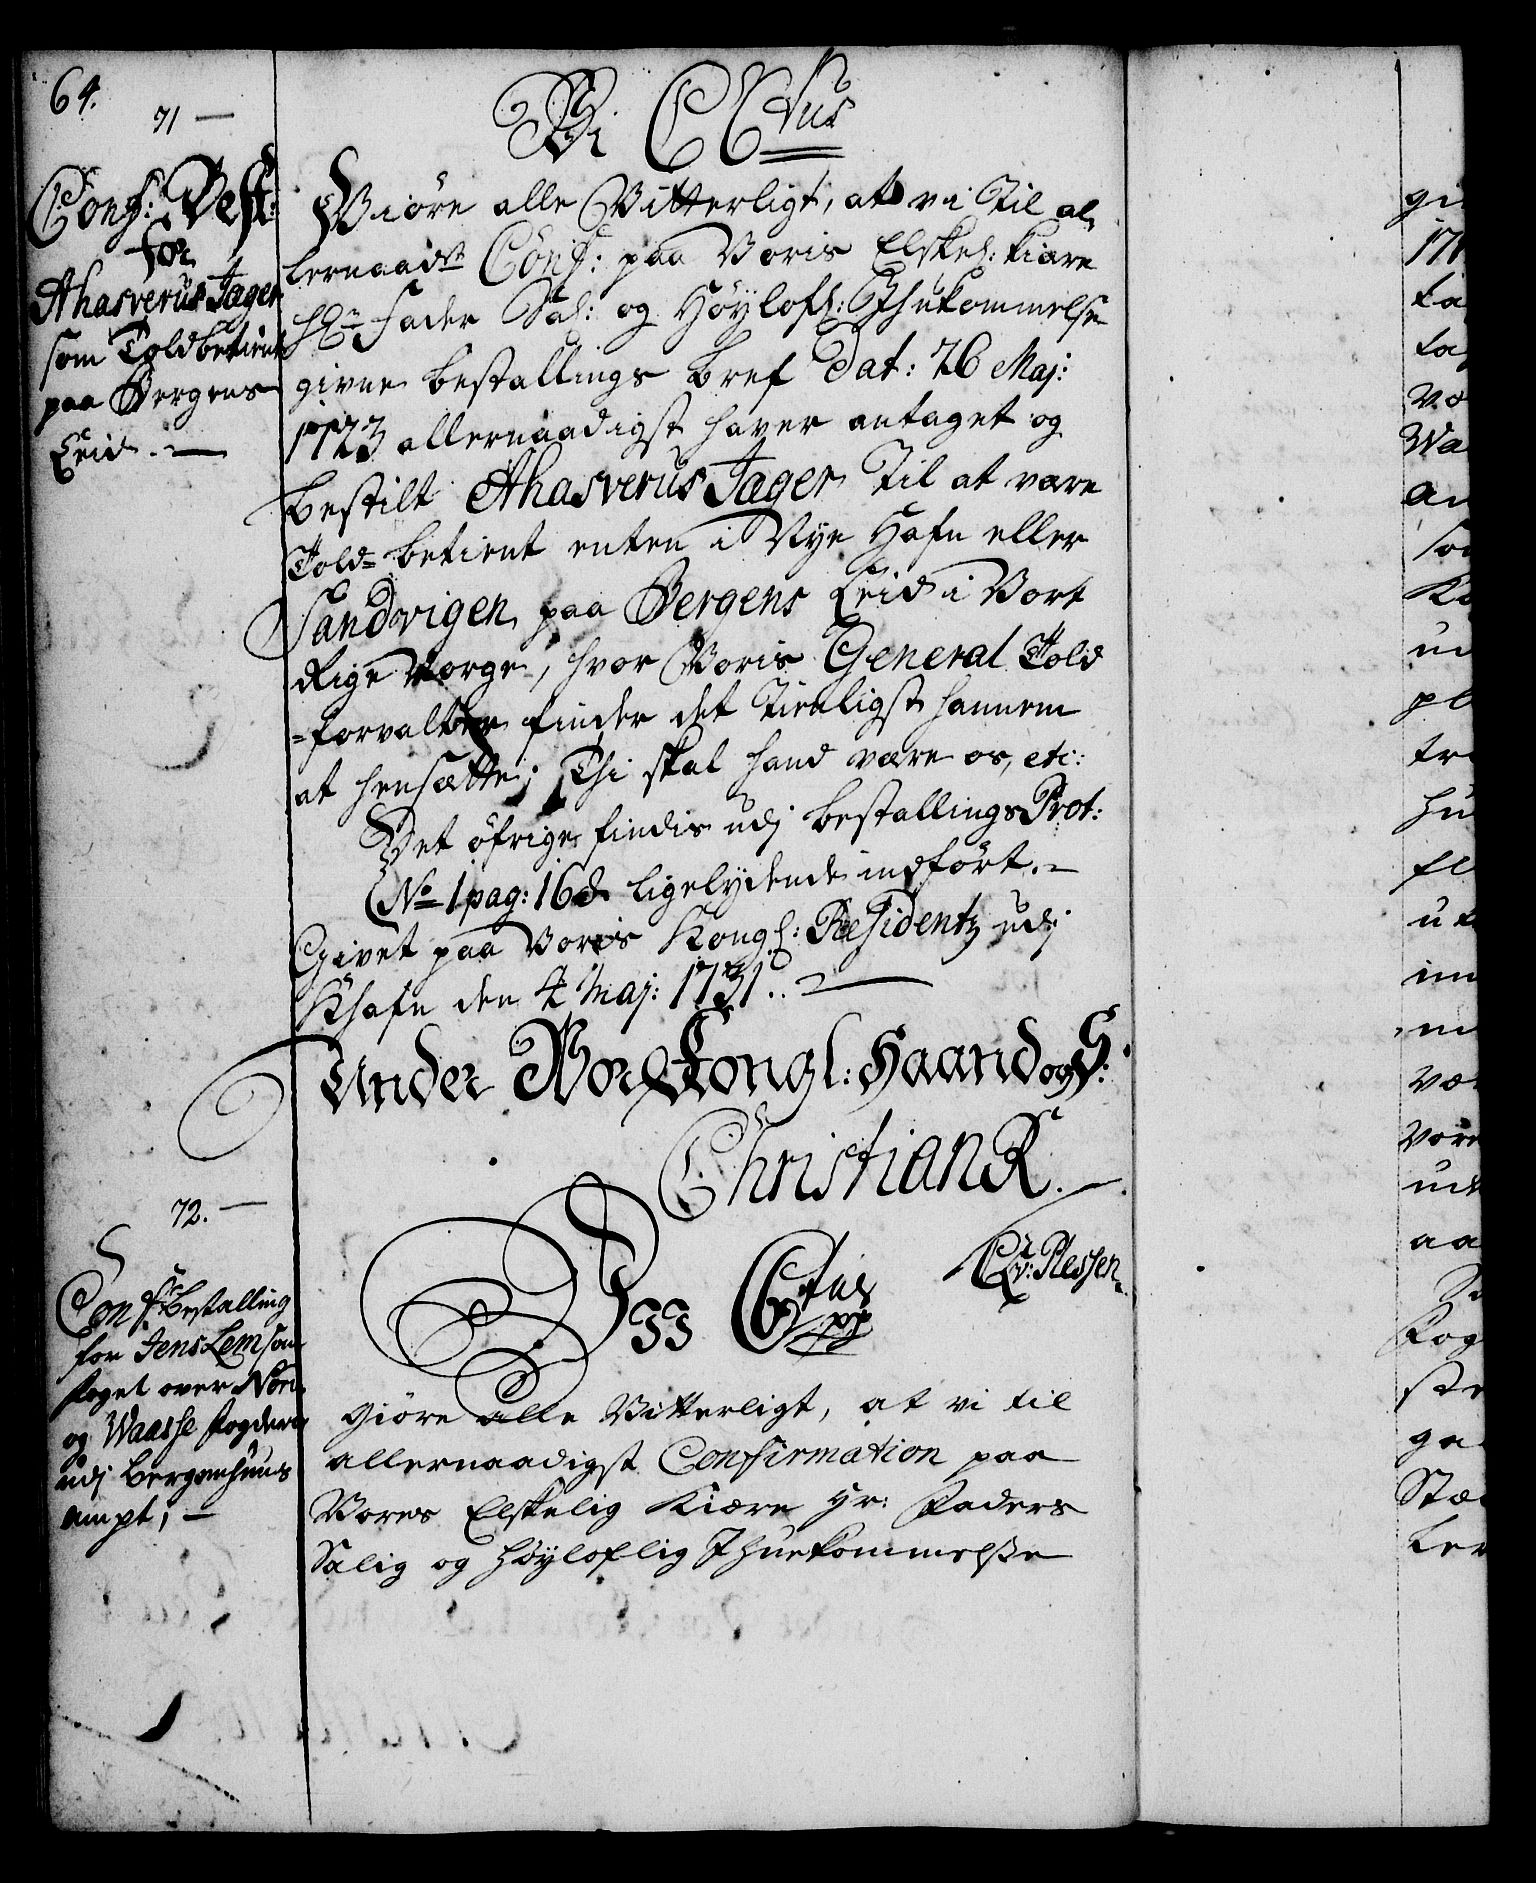 64.
71 —
Conf: Best:
for
Ahasverus Jager
som Toldbetient
paa Bergens
Leid. —
Vi C VItus
Giöre alle Vitterligt, at vi Til al-
lernaadst Conf: paa Voris Elskel: kiære
Hr Fader Sal: og Höylofl: Ihukommelse
givne bestallings Bref Dat: 26 Maj:
1723 allernaadigst haver antaget og
bestilt Ahasverus Jager Til at være
Told-betient enten i Nye Hafn eller
Sandvigen paa Bergens Leid i Vort
Rige Norge, hvor Voris General Told
-forvalter finder det Tienligst hannem
at hensætte; Thi skal hand være os, etc:
Det öfrige findis udj bestallings Prot:
No 1 pag: 168 ligelydende indfört. –
Givet paa Voris Kongl: Residentz udj
Khafn den 4 Maj: 1731. —
Under Vor Kongl: Haand og S:
Christian R.
C. A. v: Plessen.
72. —
Conf: bestalling
for Jens Lem som
foget over Nord
og Waasse fogderie
udj Bergenhuus
ampt, —
Vii C 6tus
pp
Giöre alle Vitterligt, at vi til
allernaadigst Confirmation paa
Vores Elskelig Kiære Hr: Faders
Salig og höyloflig Ihuekommelse